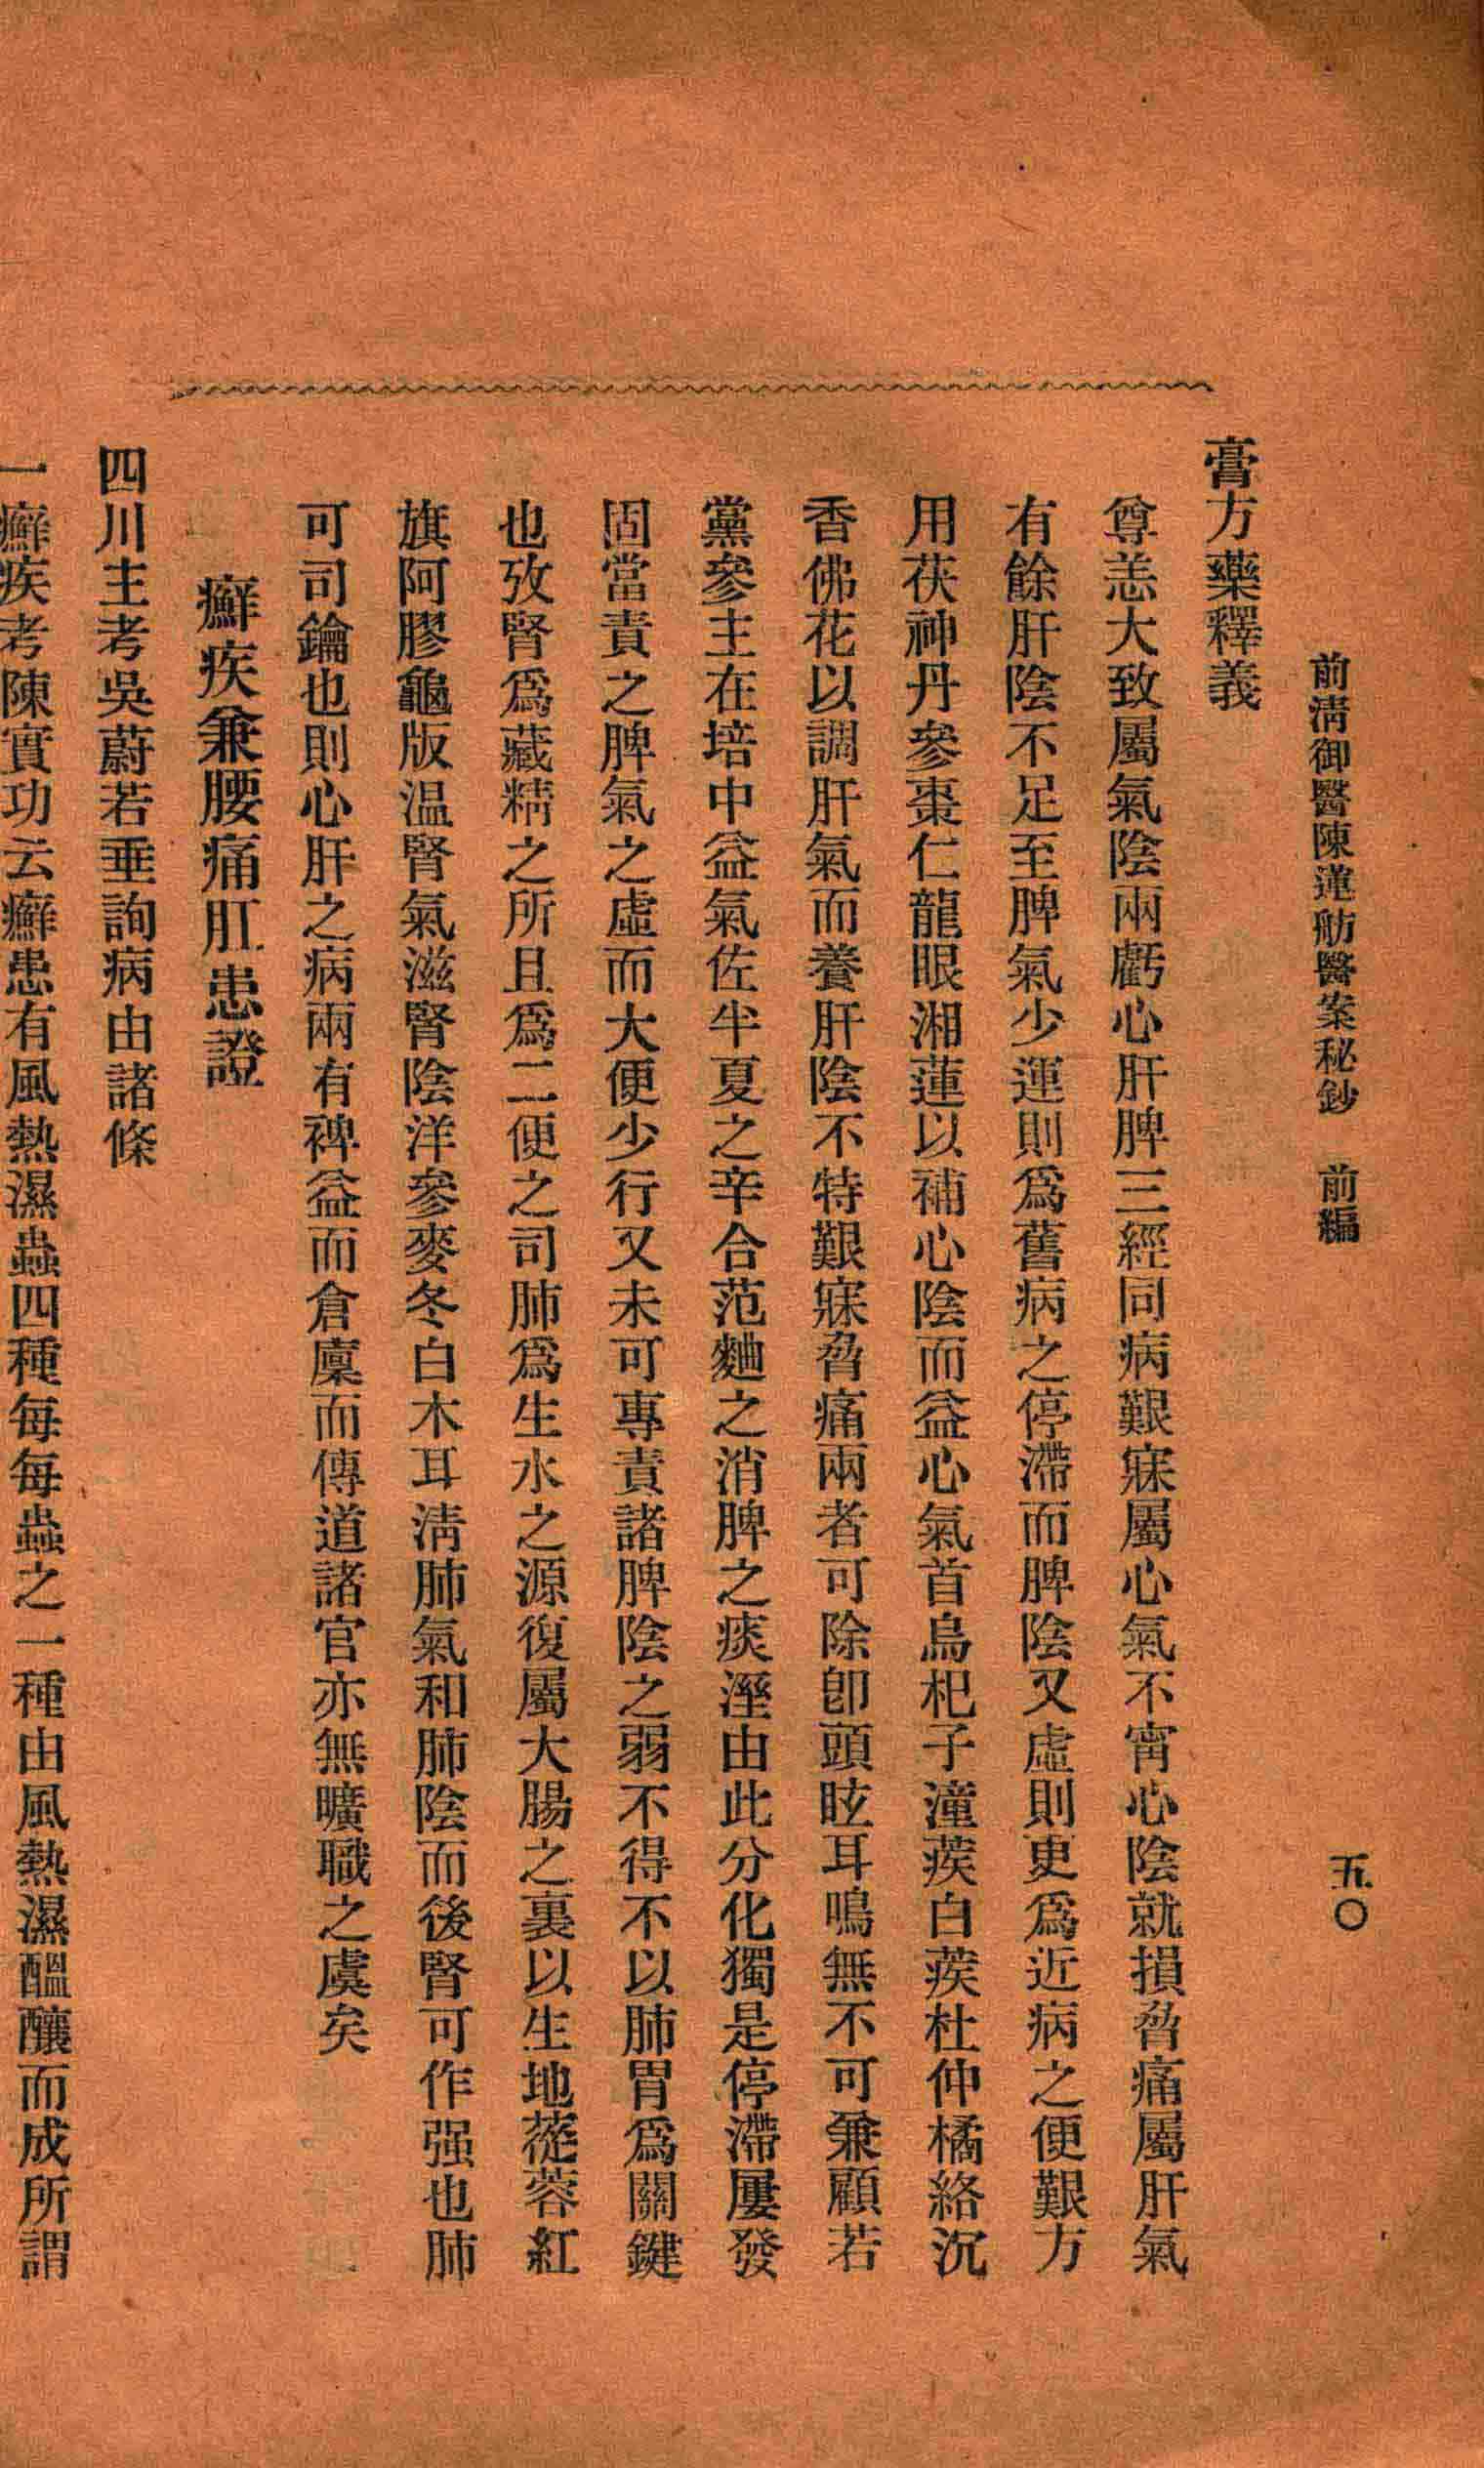 前淸御醫陳蓮舫醫案秘鈔　前編
五〇
膏方藥釋義
尊恙大致屬氣陰兩虧心肝脾三經同病艱寐屬心氣不甯心陰就損脅痛屬肝氣
有餘肝陰不足至脾氣少運則爲舊病之停滯而脾陰又虛則更爲近病之便艱方
用茯神丹參棗仁龍眼湘蓮以補心陰而益心氣首烏杞子潼蒺白蒺杜仲橘絡沉
香佛花以調肝氣而養肝陰不特艱寐脅痛兩者可除卽頭眩耳鳴無不可兼顧若
黨參主在培中益氣佐半夏之辛合范麯之消脾之痰溼由此分化獨是停滯屢發
固當責之脾氣之虛而大便少行又未可專責諸脾陰之弱不得不以肺胃爲關鍵
也攷腎爲藏精之所且爲二便之司肺爲生水之源復屬大腸之裏以生地蓯蓉紅
旗阿膠龜版温腎氣滋腎陰洋參麥冬白木耳淸肺氣和肺陰而後腎可作强也肺
可司鑰也則心肝之病兩有裨益而倉廩而傳道諸官亦無曠職之虞矣
癬疾兼腰痛肛患證
四川主考吳蔚若垂詢病由諸條
一癬疾考陳實功云癬患有風熱濕蟲四種每每蟲之一種由風熱濕醞釀而成所謂